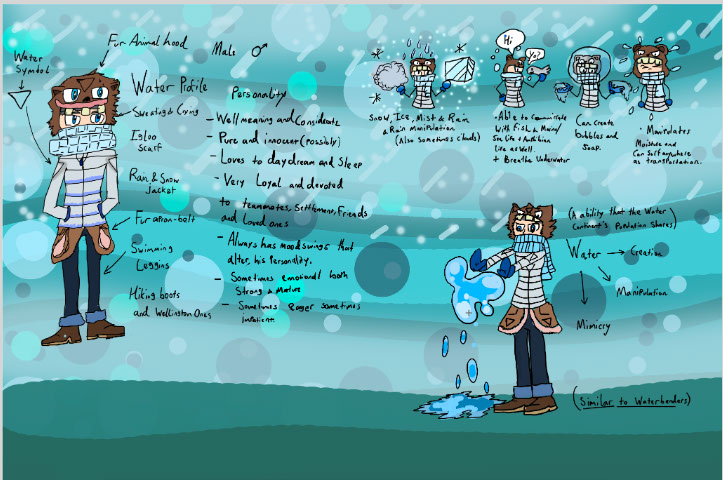 Fur Animal hood
Male ♂
Water
Symbol
Water Profile
Sweating & Crying
Igloo
Scarf
Rain & Snow
Jacket
Fur apron-belt
Swimming
Leggins
Hiking boots
and Wellington Ones
Personality
- Well meaning and Considerate
- Pure and innocent (possibly)
- Loves to day dream and Sleep
- Very Loyal and devoted
to teammates, Settlement, Friends
and Loved ones
- Always has mood swings that
alter his Personality.
- Sometimes emotional both
Strong & Mature
- Sometimes Eager sometimes
impatient.
Snow, Ice, Mist & Rain
& Rain Manipulation
(Also sometimes clouds)
Hi
Yo!
- Able to Communicate
With Fish & Marine/
Sea Life & Amphibian
Life as Well.
+ Breathe Underwater
Can create
bubbles and
Soap.
• Manipulates
Moisture and
Can Surf anywhere
as transportation.
(A ability that the Water
Continent's Population Shares)
Water → Creation
Manipulation
Mimicry
(Similar to Waterbenders)